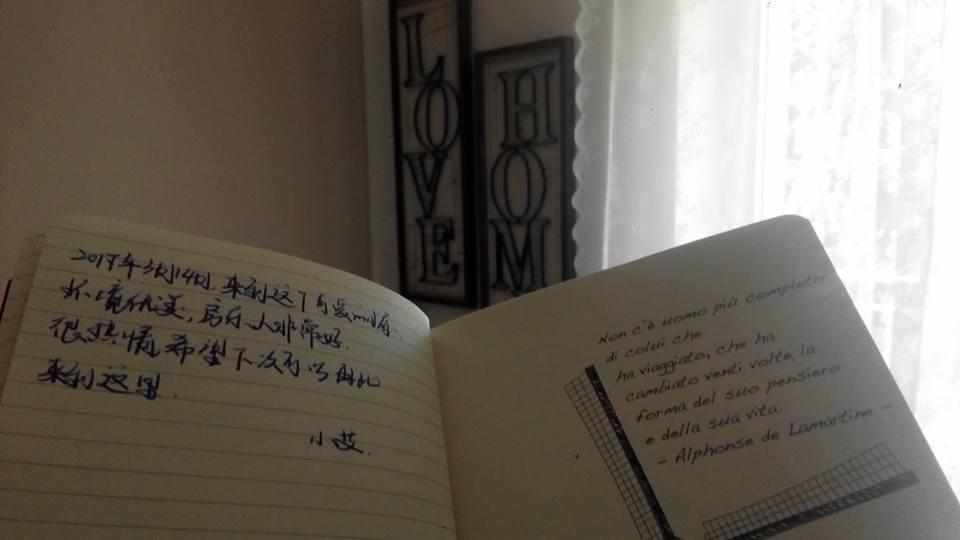 LOVE
HOM
2019年3月14日,来到这个可爱的房.
环境优美,房东人非常好.
很热情,希望下次可以
来到这里.
小艾.
Non c'è uomo più completo
di colui che
ha viaggiato, che ha
cambiato venti volte la
forma del suo pensiero
e della sua vita.
- Alphonse de Lamartine -